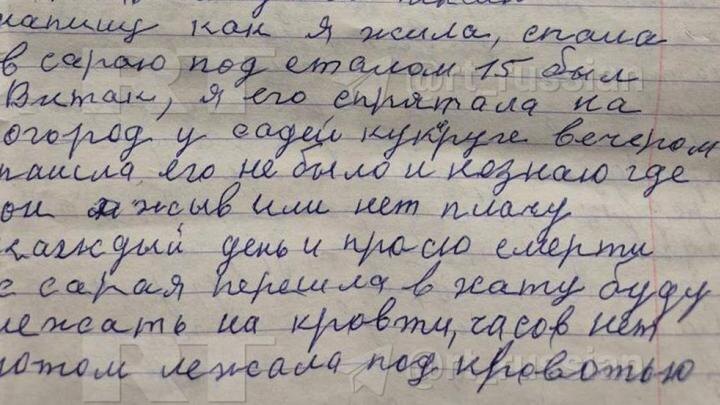 напишу как я жила, спала
в сараю под сталом 15 был
Витак, я его спрятала на
огород у садей кукруге вечером
паишла его не было и незнаю где
он жыв или нет плачу
каждый день и прасю смерти
с сарая перешла в хату буду
лежать на кровти, часов нет
потом лежала под кроватью
RT
@rt_russian
RT
@rt_russian